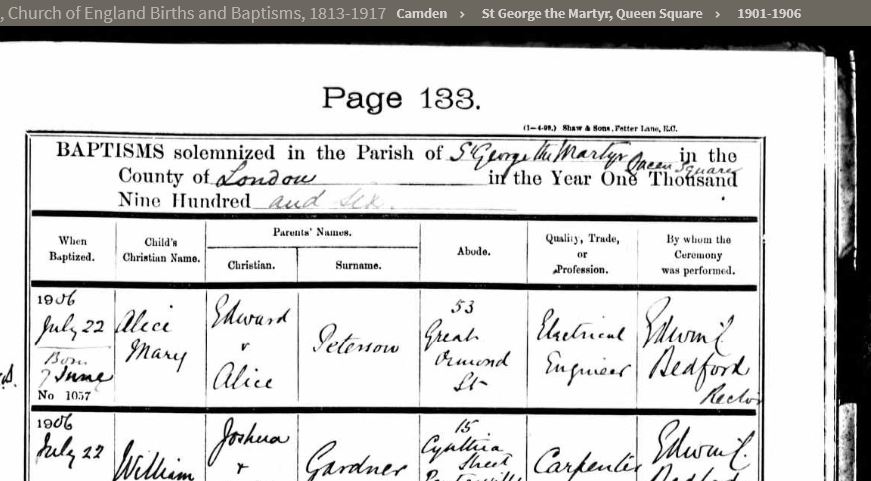 , Church of England Births and Baptisms, 1813-1917 Camden › St George the Martyr, Queen Square › 1901-1906
Page 133.
(1—4-99.) Shaw & Sons, Fetter Lane, E.C.
BAPTISMS solemnized in the Parish of St George the Martyr Queen Square in the
County of London in the Year One Thousand
Nine Hundred and six.
When Baptized.
Child's Christian Name.
Parents' Names.
Christian.
Surname.
Abode.
Quality, Trade, or Profession.
By whom the Ceremony was performed.
1906
July 22
Born
7 June
No 1057
Alice
Mary
Edward
&
Alice
Peterson
53
Great
Ormond
St
Electrical
Engineer
Edwin C.
Bedford
Rector
1906
July 22
William
Joshua
&
Gardner
15
Cynthia
Street
Carpenter
Edwin C.
Bedford